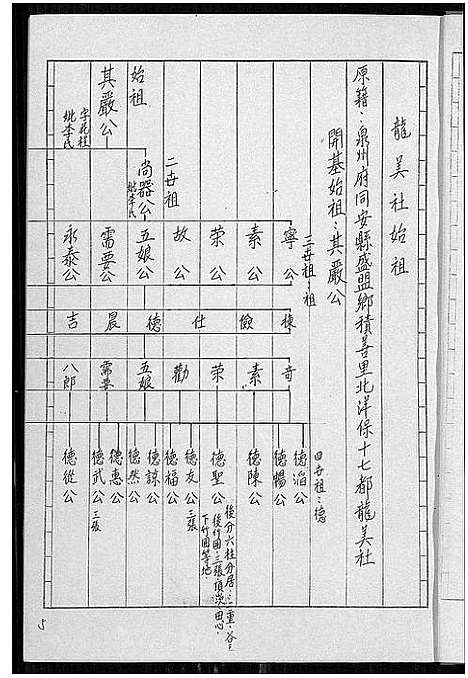 龍美社始祖
原籍：泉州府同安縣盛盟鄉積善里北洋保十七都龍美社
開基始祖：其嚴公
三世祖：祖
始祖
其嚴公
妣李氏
二世祖
尚器公
妣李氏
寧公
素公
荣公
故公
五娘公
需要公
永泰公
棟
儉
仕
德
晨
吉
奇
素
荣
勸
五娘
需要
八郎
四世祖：德
德滔公
德暢公
德陳公
德聖公
後分六柱分居：二重：谷
後竹圍：三張頂
田心：
下竹圍等地
德友公
三張
德福公
德諒公
德然公
德惠公
德武公
三張
德從公
5